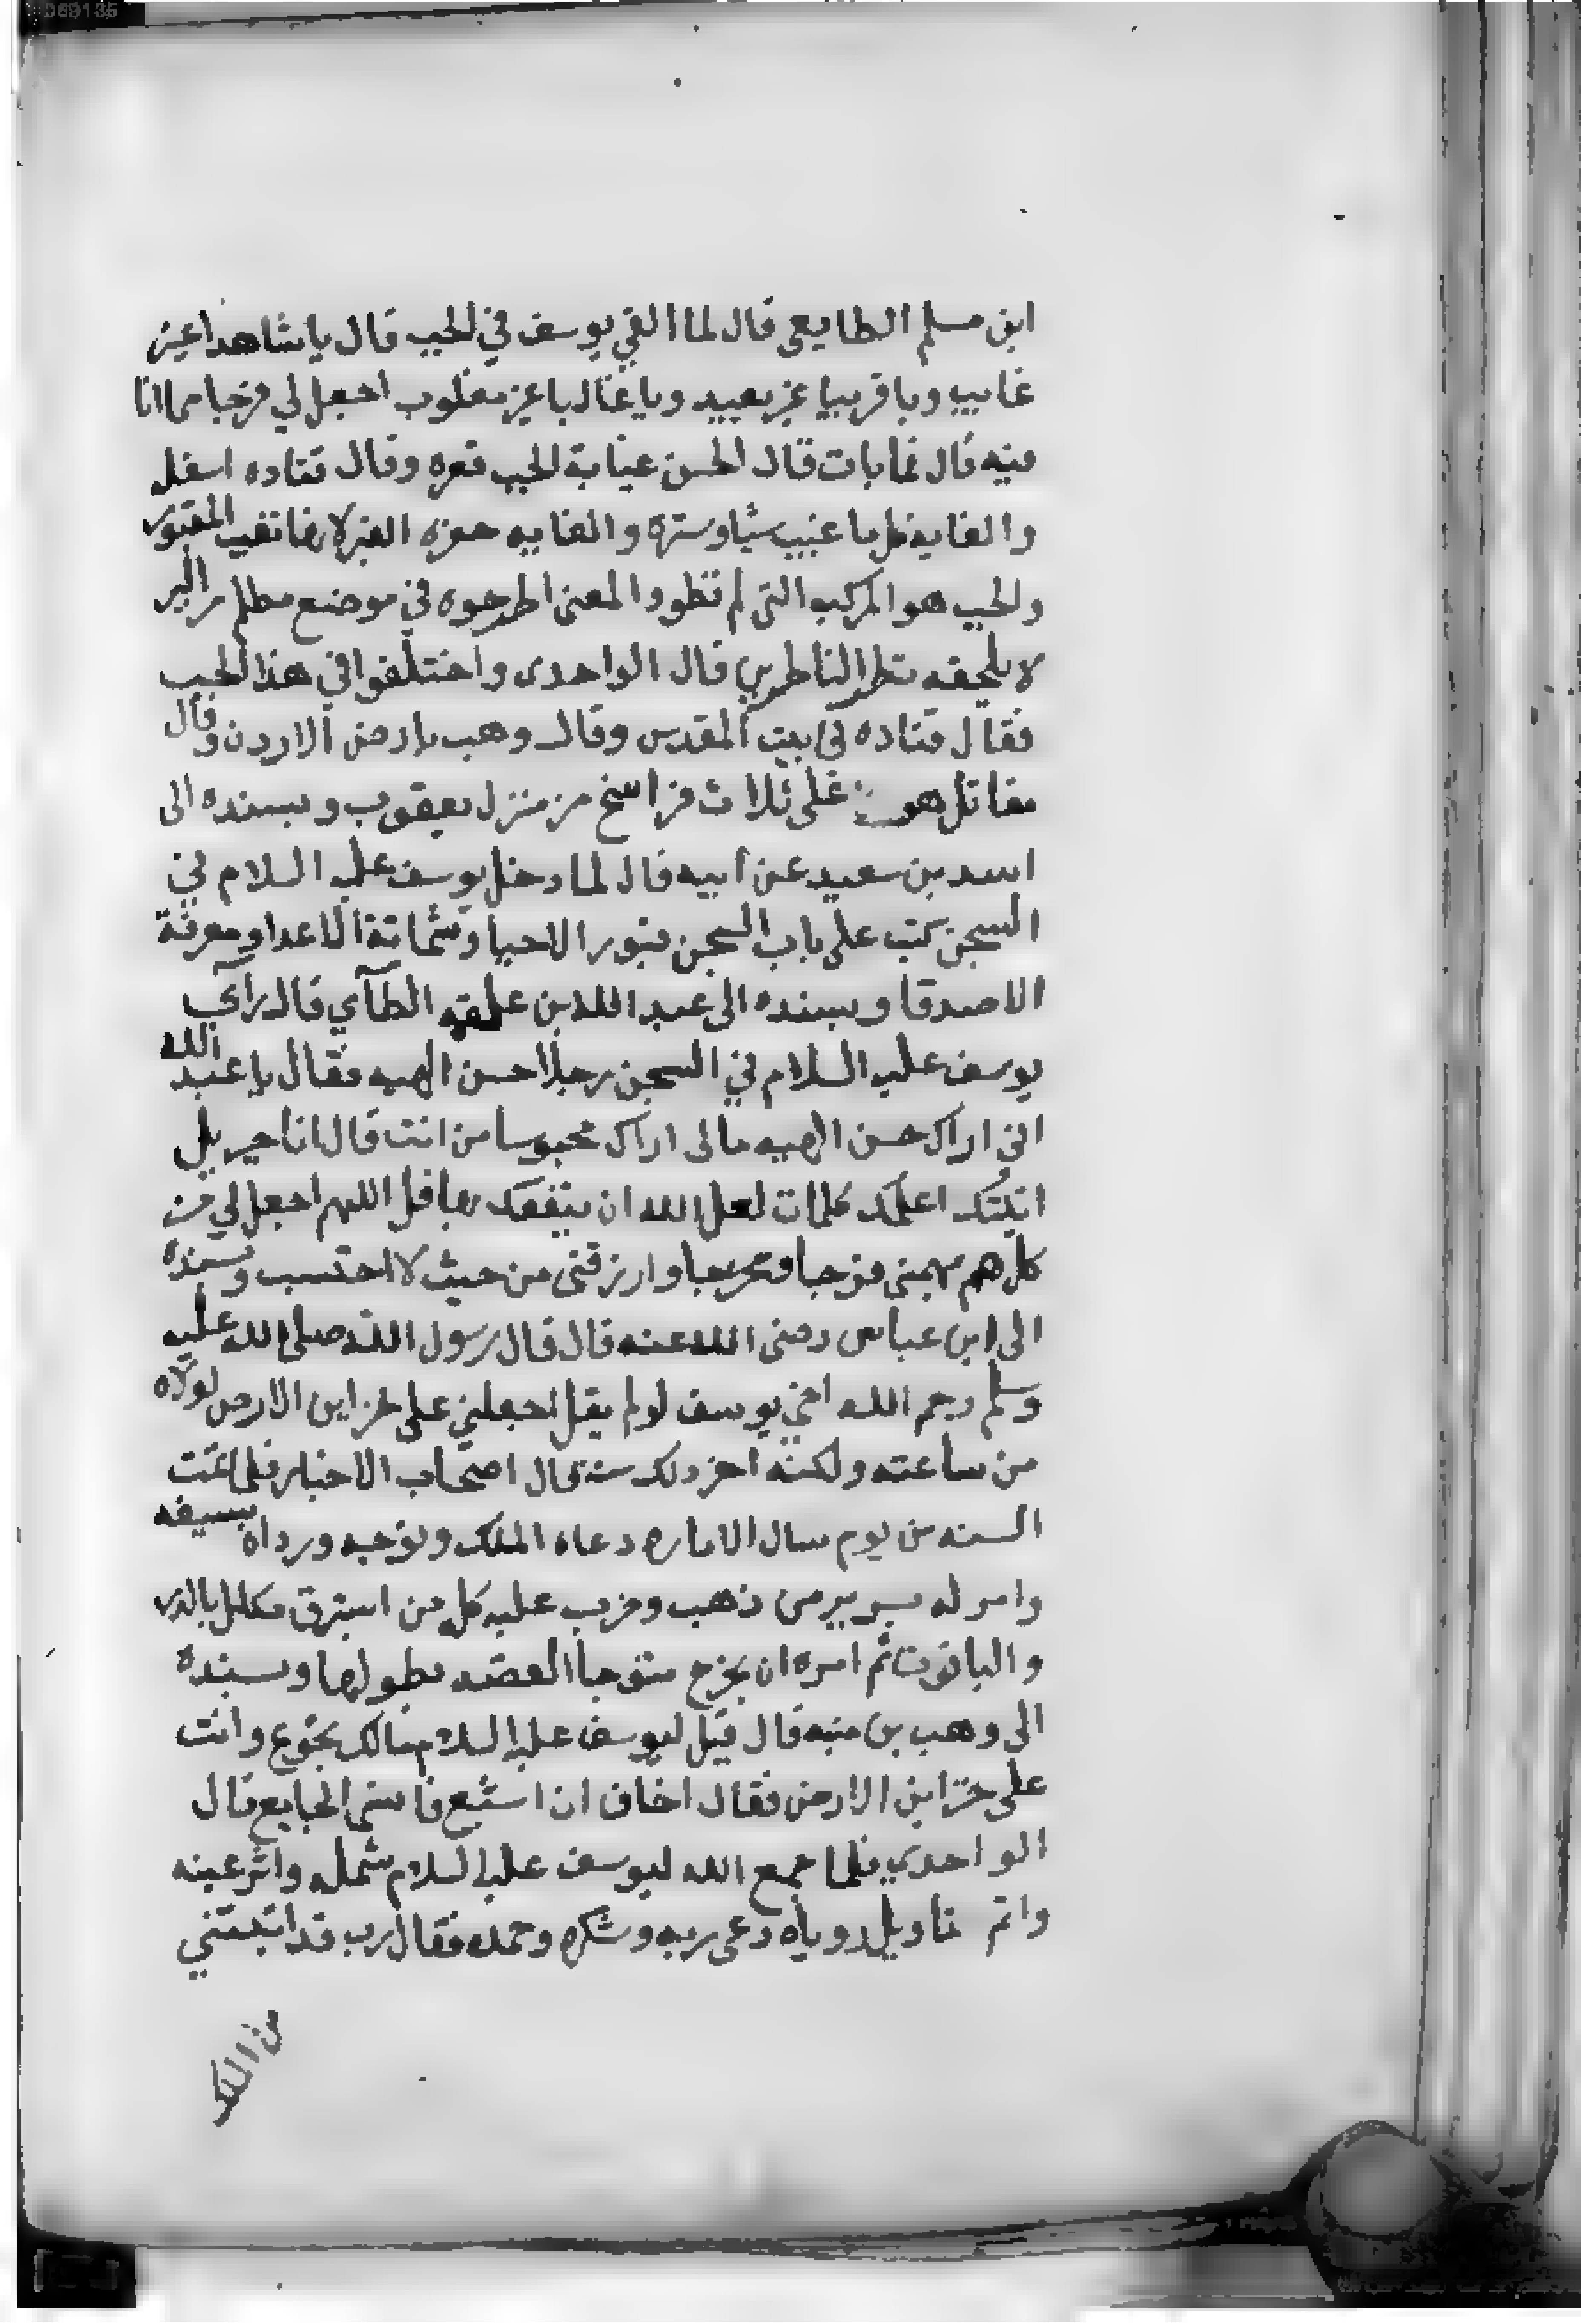 ابن مسلم الطايعى قال لما القي يوسف في الجب قال يا شاهدا غير
غايب ويا قريبا غير بعيد ويا غالبا غير مغلوب اجعل لي فرجا مما انا
فيه قال فما بات قال الحسن غيابة الجب قعره وقال قتاده اسفل
والغيابه كل ما غيب شيا وستره والغيابه حفره القبر لانها تغيب المقبور
والجب هو المركب التي لم تطو والمعنى اطرحوه في موضع مظلم من البير
لا يلحقه نظر الناظرين قال الواحدى واختلفوا في هذا الجب
فقال قتاده في بيت المقدس وقال وهب بارض الاردن وقال
مقاتل هو على ثلاث فراسخ من منزل يعقوب وبسنده الى
اسد بن سعيد عن ابيه قال لما دخل يوسف عليه السلام في
السجن كتب على باب السجن قبور الاحيا وشماتة الاعدا ومعرفة
الاصدقا وبسنده الى عبد الله بن علقمه الطآي قال راى
يوسف عليه السلام في السجن رجلا حسن الهيه فقال يا عبد الله
انى اراك حسن الهيه مالى اراك محبوسا من انت قال انا جبريل
اتيتك اعلمك كلمات لعل الله ان ينفعك بها قل اللهم اجعل لي من
كل هم يهمنى فرجا ومخرجا وارزقنى من حيث لا احتسب وبسنده
الى ابن عباس رضى الله عنه قال قال رسول الله صلى الله عليه
وسلم رحم الله اخي يوسف لو لم يقل اجعلني على خزاين الارض لولاه
من ساعته ولكنه اخر ذلك سنة قال اصحاب الاخبار فلما تمت
السنه من يوم سال الاماره دعاه الملك وتوجه ورداه بسيفه
وامر له بسرير من ذهب وضرب عليه كل من استبرق مكلل بالدر
والياقوت ثم امره ان يخرج متوجا القصه بطولها وبسنده
الى وهب بن منبه قال قيل ليوسف عليه السلام مالك تجوع وانت
على خزاين الارض فقال اخاف ان اشبع فانسى الجايع قال
الواحدي فلما جمع الله ليوسف عليه السلام شمله واقر عينه
واتم تاويل روياه دعى ربه وشكره وحمده فقال رب قد اتيتني
من الملك